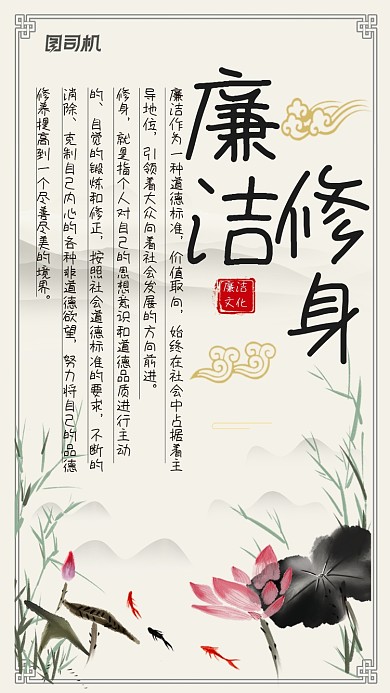 图司机
廉洁
修身
廉洁
文化
廉洁作为一种道德标准，价值取向，始终在社会中占据着主
导地位，引领着大众向着社会发展的方向前进。
修身，就是指个人对自己的思想意识和道德品质进行主动
的、自觉的锻炼和修正，按照社会道德标准的要求，不断的
消除、克制自己内心的各种非道德欲望，努力将自己的品德
修养提高到一个尽善尽美的境界。